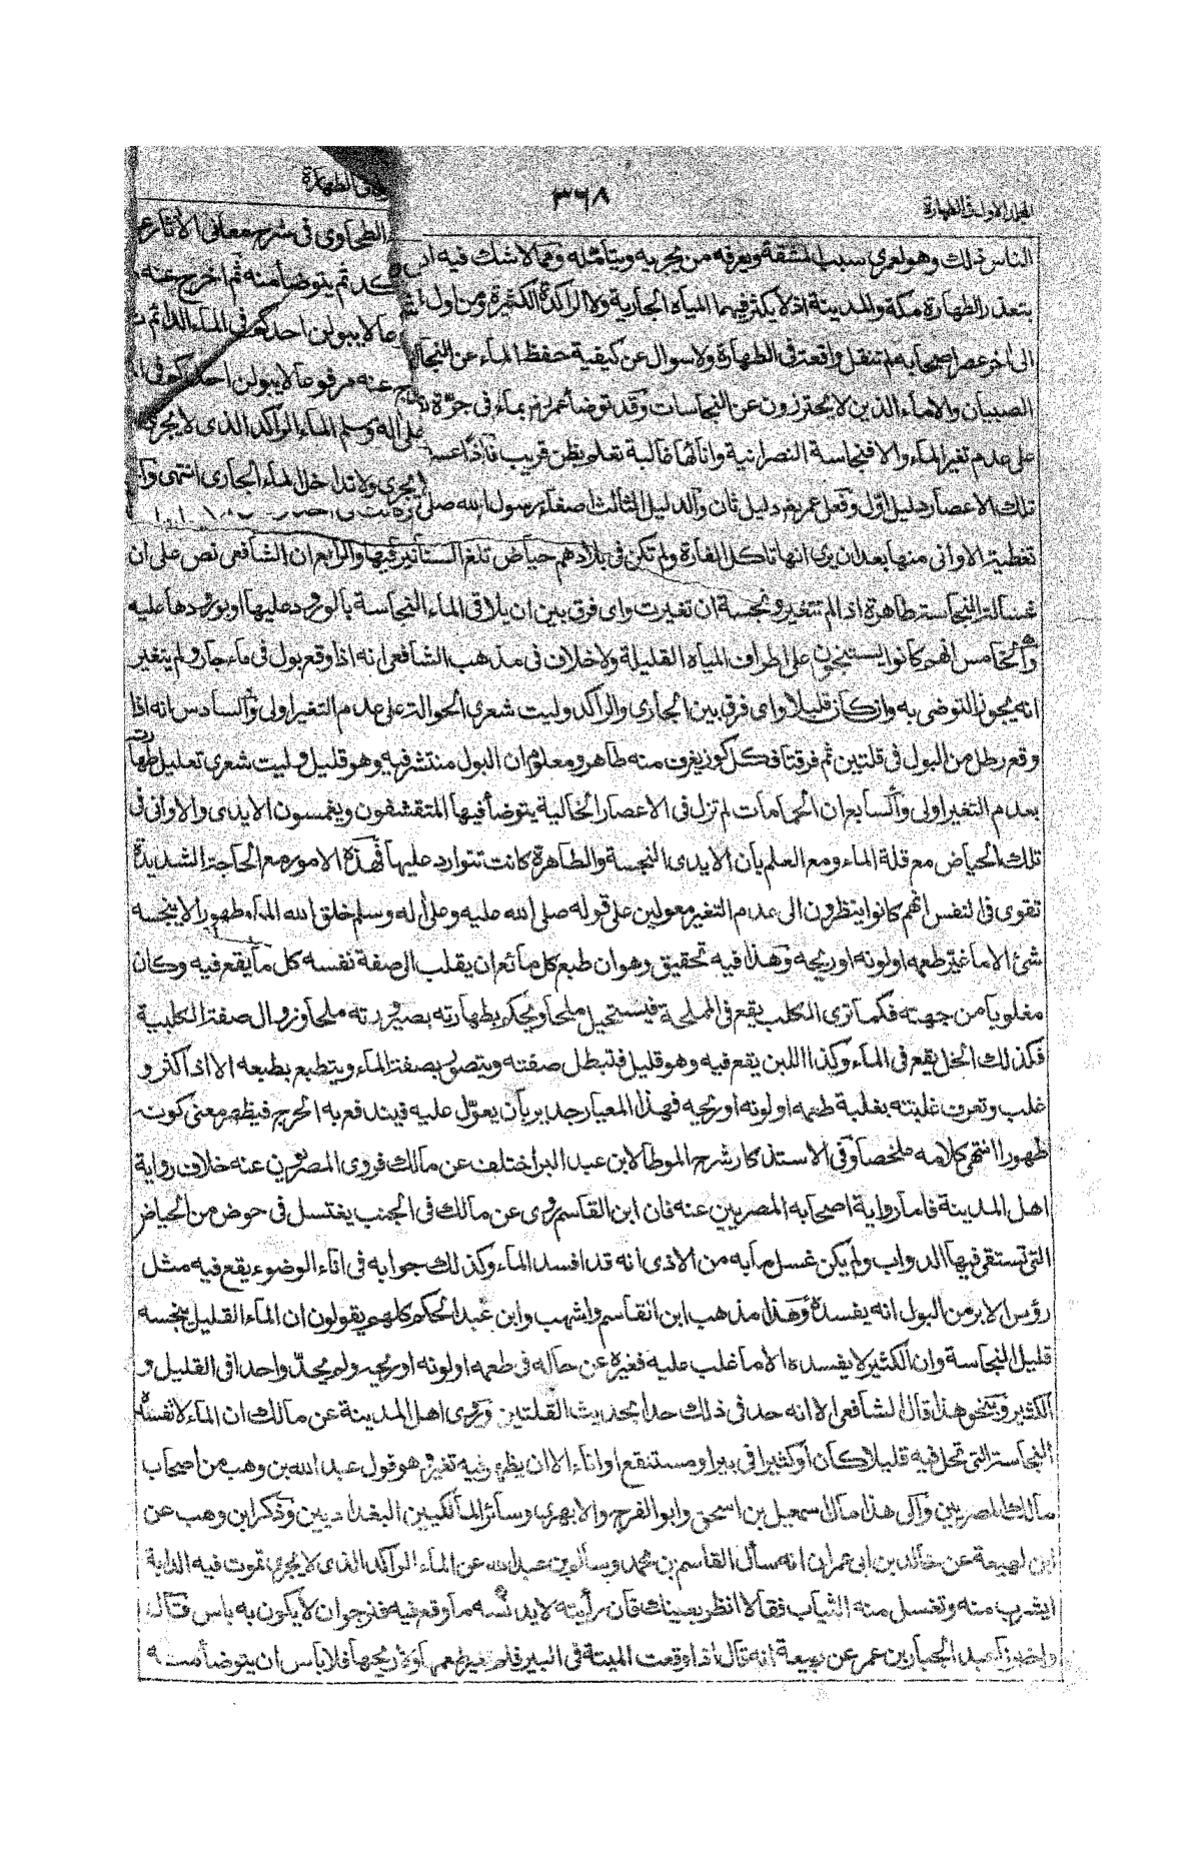 المجلد الاول فى الطهارة
٣٦٨
فى الطهارة
الناس ذلك وهو لعمرى سبب المشقة ويعرفه من يجربه ويتأمله ومما لا شك فيه ان
بتعذر الطهارة مكة والمدينة اذ لا يكثر فيهما المياه الجارية ولا الراكدة الكثيرة ومن اول
الى اخر عصر اصحابه لم تنقل واقعة فى الطهارة ولا سوال عن كيفية حفظ الماء عن
الصبيان والاماء الذين لا يحترزون عن النجاسات وقد توضأ عمر رض بماء فى جرة
على عدم تغير الماء والا فنجاسة النصرانية وانائها غالبة تعلم بظن قريب فاذا
تلك الاعصار دليل اول وفعل عمر رض دليل ثان والدليل الثالث اصغاء رسول الله صلى
الطحاوى فى شرح معانى الاثار
ثم يتوضأ منه ثم اخرج عنه
لا يبولن احدكم فى الماء الدائم
عنه مرفوعا لا يبولن احدكم فى
على اله وسلم الماء الراكد الذى لا يجرى
يجرى ولا تداخل الماء الجارى انتهى
تغطية الاوانى منها بعد ان يرى انها تاكل الفارة ولم تكن فى بلادهم حياض تلغ السنانير فيها والرابع ان الشافعى نص على ان
غسالة النجاسة طاهرة اذا لم تتغير ونجسة ان تغيرت واى فرق بين ان يلاقى الماء النجاسة بالورود عليها او بورودها عليه
والخامس انهم كانوا يستنجون على اطراف المياه القليلة ولا خلاف فى مذهب الشافعى انه اذا وقع بول فى ماء جار ولم يتغير
انه يجوز التوضى به وان كان قليلا واى فرق بين الجارى والراكد وليت شعرى الحوالة على عدم التغير اولى والسادس انه اذا
وقع رطل من البول فى قلتين ثم فرقتا فكل كوز يغرف منه طاهر ومعلوم ان البول منتشر فيه وهو قليل وليت شعرى تعليل طهارته
بعدم التغير اولى والسابع ان الحمامات لم تزل فى الاعصار الخالية يتوضأ فيها المتقشفون ويغمسون الايدى والاوانى فى
تلك الحياض مع قلة الماء ومع العلم بان الايدى النجسة والطاهرة كانت تتوارد عليها فهذه الامور مع الحاجة الشديدة
تقوى فى النفس انهم كانوا ينظرون الى عدم التغير معولين على قوله صلى الله عليه وعلى اله وسلم خلق الله الماء طهورا لا ينجسه
شئ الا ما غير طعمه او لونه او ريحه وهذا فيه تحقيق وهو ان طبع كل مائع ان يقلب الى صفة نفسه كل ما يقع فيه وكان
مغلوبا من جهته فكما ترى الكلب يقع فى المملحة فيستحيل ملحا ويحكم بطهارته بصيرورته ملحا وزوال صفة الكلبية
فكذلك الخل يقع فى الماء وكذا اللبن يقع فيه وهو قليل فتبطل صفته ويتصف بصفة الماء ويتطبع بطبعه الا اذا كثر و
غلب وتعرف غلبته بغلبة طعمه او لونه او ريحه فهذا المعيار جدير بان يعول عليه فيندفع به الحرج فيظهر معنى كونه
طهورا انتهى كلامه ملخصا وفى الاستذكار شرح الموطا لابن عبد البر اختلف عن مالك فروى المصريون عنه خلاف رواية
اهل المدينة فاما رواية اصحابه المصريين عنه فان ابن القاسم روى عن مالك فى الجنب يغتسل فى حوض من الحياض
التى تستقى فيها الدواب ولم يكن غسل ما به من الاذى انه قد افسد الماء وكذلك جوابه فى اناء الوضوء يقع فيه مثل
رؤس الابر من البول انه يفسده وهذا مذهب ابن القاسم واشهب وابن عبد الحكم كلهم يقولون ان الماء القليل ينجسه
قليل النجاسة وان الكثير لا يفسده الا ما غلب عليه فغيره عن حاله فى طعمه او لونه او ريحه ولم يحد واحدا فى القليل و
الكثير وبنحو هذا قال الشافعى الا انه حد فى ذلك حدا بحديث القلتين وروى اهل المدينة عن مالك ان الماء لا تفسده
النجاسة التى تحل فيه قليلا كان او كثيرا فى بير او مستنقع او اناء الا ان يظهر فيه تغير وهو قول عبد الله بن وهب من اصحاب
مالك المصريين والى هذا مال اسمعيل بن اسحق وابو الفرج والابهرى وسائر المالكيين البغداديين وذكر ابن وهب عن
ابن لهيعة عن خالد بن ابى عمران انه سأل القاسم بن محمد وسالم بن عبد الله عن الماء الراكد الذى لا يجرى تموت فيه الدابة
ايشرب منه وتغسل منه الثياب فقالا انظر بعينك فان رأيته لا يدنسه ما وقع فيه فنرجوان لا يكون به باس قال
واخبرنا عبد الجبار بن عمر عن ربيعة انه قال اذا وقعت الميتة فى البير فلم يتغير طعمها ولا ريحها فلا باس ان يتوضأ منه